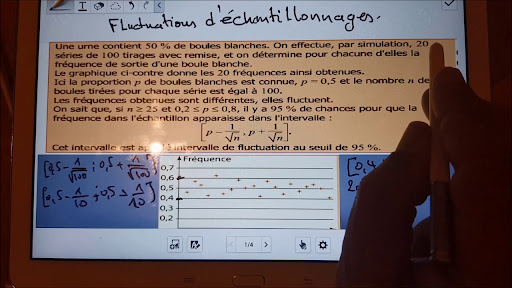 Fluctuations d'échantillonnages.
Une urne contient 50 % de boules blanches. On effectue, par simulation, 20
séries de 100 tirages avec remise, et on détermine pour chacune d'elles la
fréquence de sortie d'une boule blanche.
Le graphique ci-contre donne les 20 fréquences ainsi obtenues.
Ici la proportion p de boules blanches est connue, p = 0,5 et le nombre n de
boules tirées pour chaque série est égal à 100.
Les fréquences obtenues sont différentes, elles fluctuent.
On sait que, si n ≥ 25 et 0,2 ≤ p ≤ 0,8, il y a 95 % de chances pour que la
fréquence dans l'échantillon apparaisse dans l'intervalle :
[p - 1/√n , p + 1/√n].
Cet intervalle est intervalle de fluctuation au seuil de 95 %.
[0,5 - 1/√100 ; 0,5 + 1/√100]
[0,5 - 1/10 ; 0,5 + 1/10]
Fréquence
0,7
0,6
0,5
0,4
0,3
0,2
[0,4
1/4